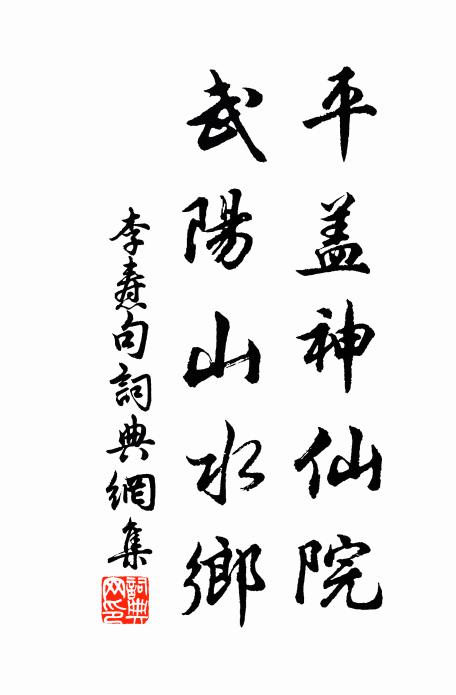 平盖神仙院
武陽山水鄉
李焘句詞典網集
詞典
网印